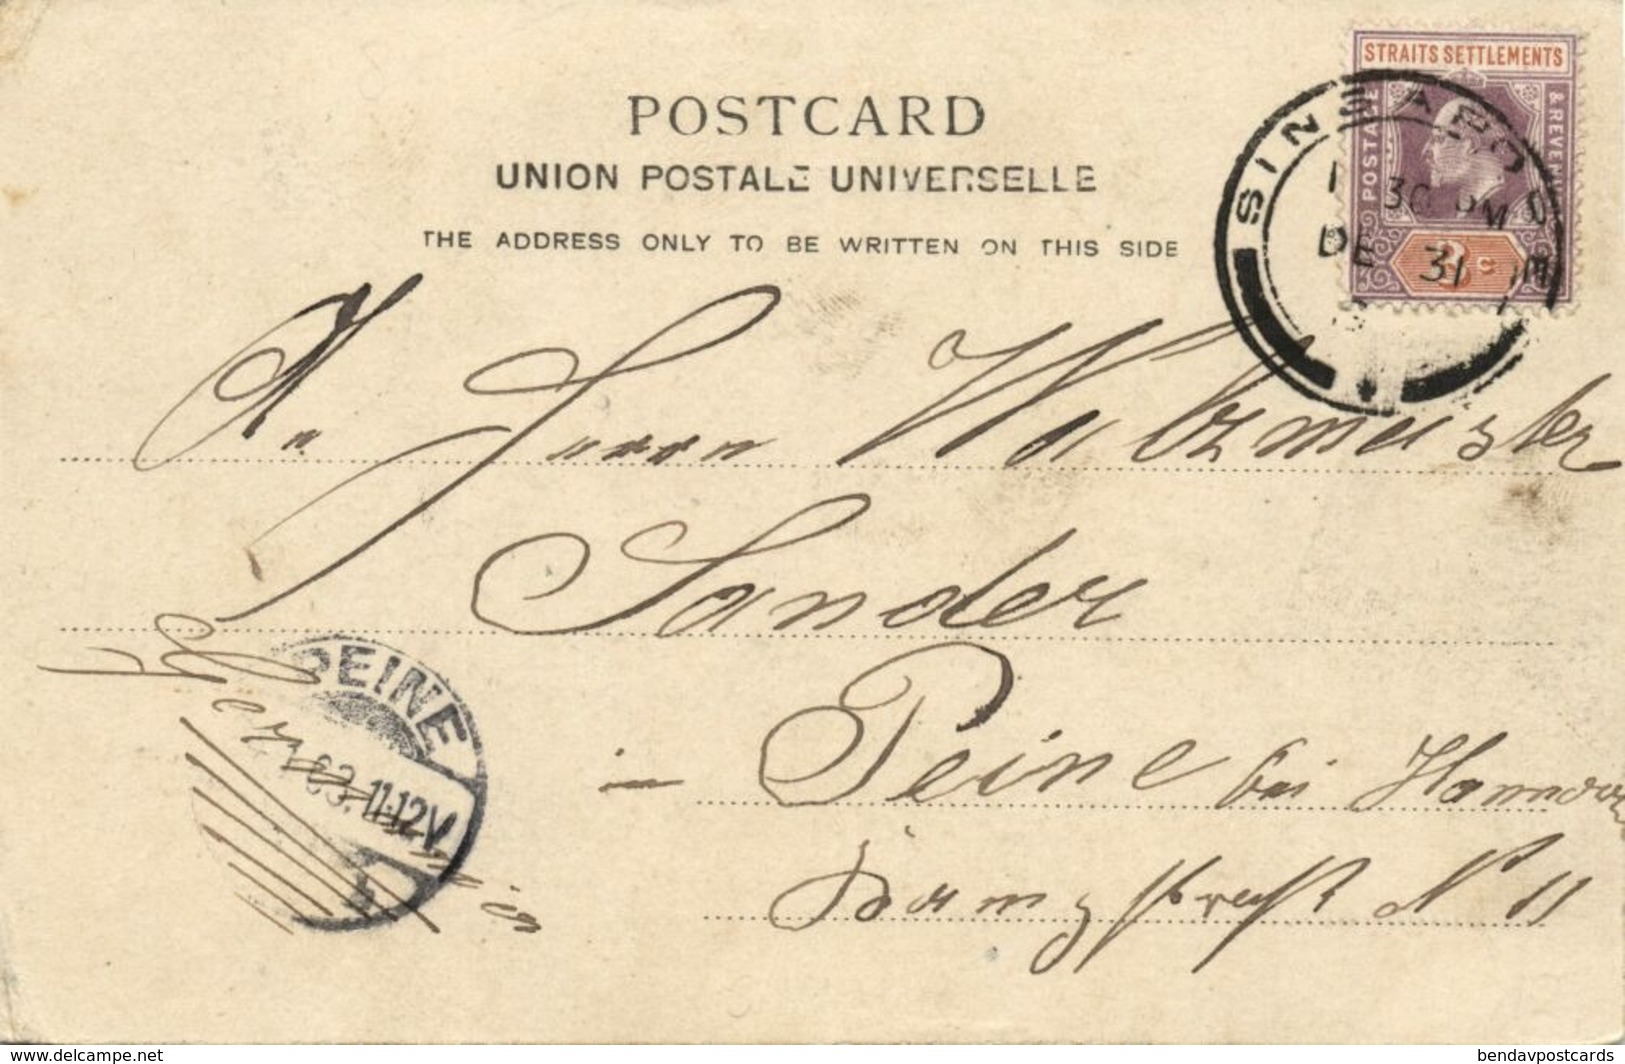 STRAITS SETTLEMENTS
POSTAGE & REVENUE
3 C
SINGAPORE
30 PM
DE 31
POSTCARD
UNION POSTALE UNIVERSELLE
THE ADDRESS ONLY TO BE WRITTEN ON THIS SIDE
An Herrn
Sander
in Peine bei Hannover
N 11
Germanien
PEINE
03. 11-12V.
www.delcampe.net
bendavpostcards